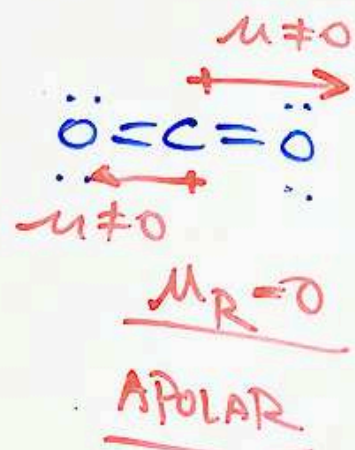 μ≠0
O=C=O
μ≠0
μR=0
APOLAR